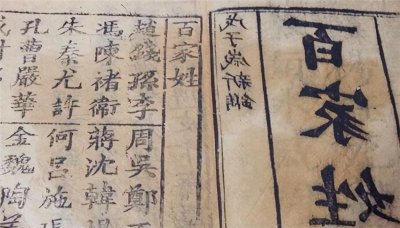 百家姓
戊子歲新鐫
百家姓
趙錢孫李 周吳鄭王
馮陳褚衛 蔣沈韓楊
朱秦尤許 何呂施張
孔曹嚴華 金魏陶姜